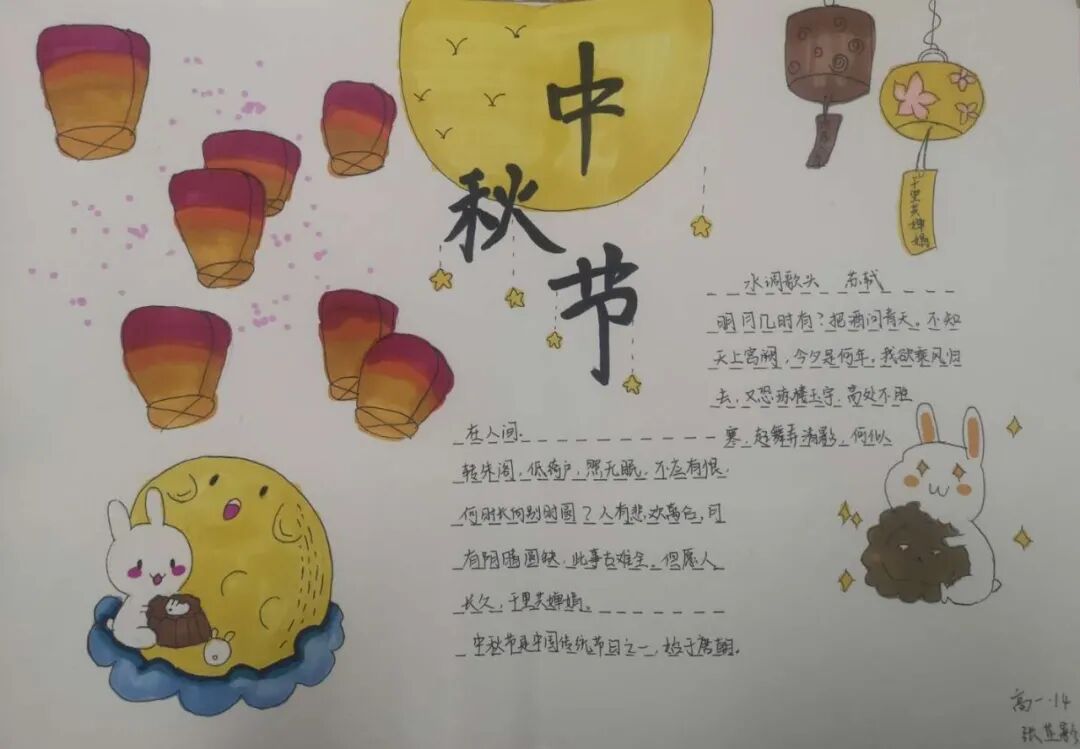 中秋节
千里共婵娟
水调歌头 苏轼
明月几时有?把酒问青天。不知
天上宫阙,今夕是何年。我欲乘风归
去,又恐琼楼玉宇.高处不胜
寒,起舞弄清影,何似
在人间.
转朱阁,低绮户,照无眠.不应有恨,
何时长向别时圆?人有悲欢离合,月
有阴晴圆缺,此事古难全。但愿人
长久,千里共婵娟。
中秋节是中国传统节日之一,始于唐朝。
高一·14
张